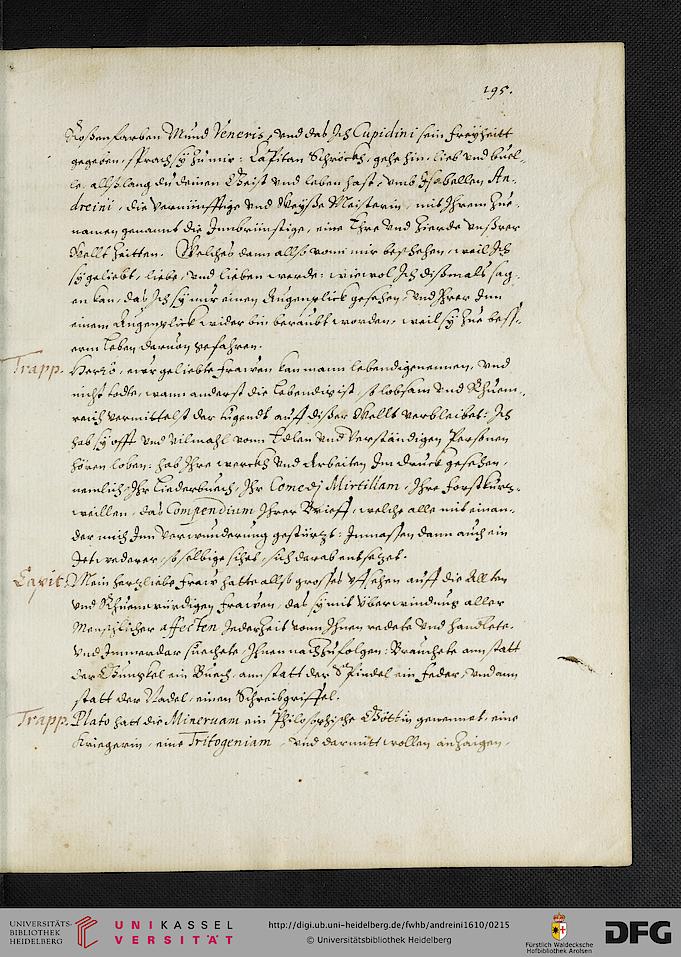 195.
Roßenfarben Mund Veneris, vnd das Ich Cupidini sein freyheitt
gegeben, sprach sy zu mir: Capitan Schröckh, gehe hin, lieb vnd buel-
le, allßlang du deinen Geist vnd leben hast, vmb Isabellen An-
dreini, die vernünfftige vnd Weyße Meisterin, mit Ihrem Zue-
namen genannt die Innbrünstige, eine Ehre vnd Zierde vnßrer
Wellt Zeitten. Welches dann allso vonn mir beschehen, weil Ich
sy geliebt, liebe, vnd lieben werde: wiewol Ich dißmals sag-
en kan, das Ich sy nur einen Augenplick gesehen, vnd Ihrer Inn
einem Augenplick wider bin beraubt worden, weil sy Zue bess-
erm Leben daruon gefahren.
Trapp. Herr, ewr geliebte frawen kan mann lebendig nennen, vnd
nicht todte, wann anderst die lebendig ist, so lobsam vnd Rhuem-
reich vermittelst der tugendt auff dißer Wellt verbleibet: Ich
hab sy offt vnd vilmahl vonn Edlen vnd Verständigen Personen
hören loben: hab Ihre werckh vnd Arbeiten Im druck gesehen,
nemlich Ihr Liederbuech, Ihr Comedj Mirtillam, Ihre forstkurtz-
weillen, das Compendium Ihrer Brieff, welche alle mit einan-
der mich Inn verwunderung gestürtzt: Inmassen dann auch ein
Jetwederer, so selbige sihet, sich darab entsetzet.
Capit. Mein hertzliebe fraw hatte allso grosses vfsehen auff die Allten
vnd Rhuemwürdigen frawen, das sy mit überwindung aller
Menschlicher affecten Jederzeit vonn Ihnen redete vnd handlete,
vnd Immerdar suechete, Ihnen nachzufolgen: Brauchete ann statt
der Gunckel ein Buech, ann statt der Spindel ein feder, vnd ann
statt der Nadel, einen Schreibgriffel.
Trapp. Plato hatt die Mineruam ein Philosophische Göttin genennet, eine
Kriegerin, eine Tritogeniam, vnd darmitt wollen anZaigen,
UNIVERSITÄTS-
BIBLIOTHEK
HEIDELBERG
UNIKASSEL
VERSITÄT
http://digi.ub.uni-heidelberg.de/fwhb/andreini1610/0215
© Universitätsbibliothek Heidelberg
Fürstlich Waldecksche
Hofbibliothek Arolsen
DFG